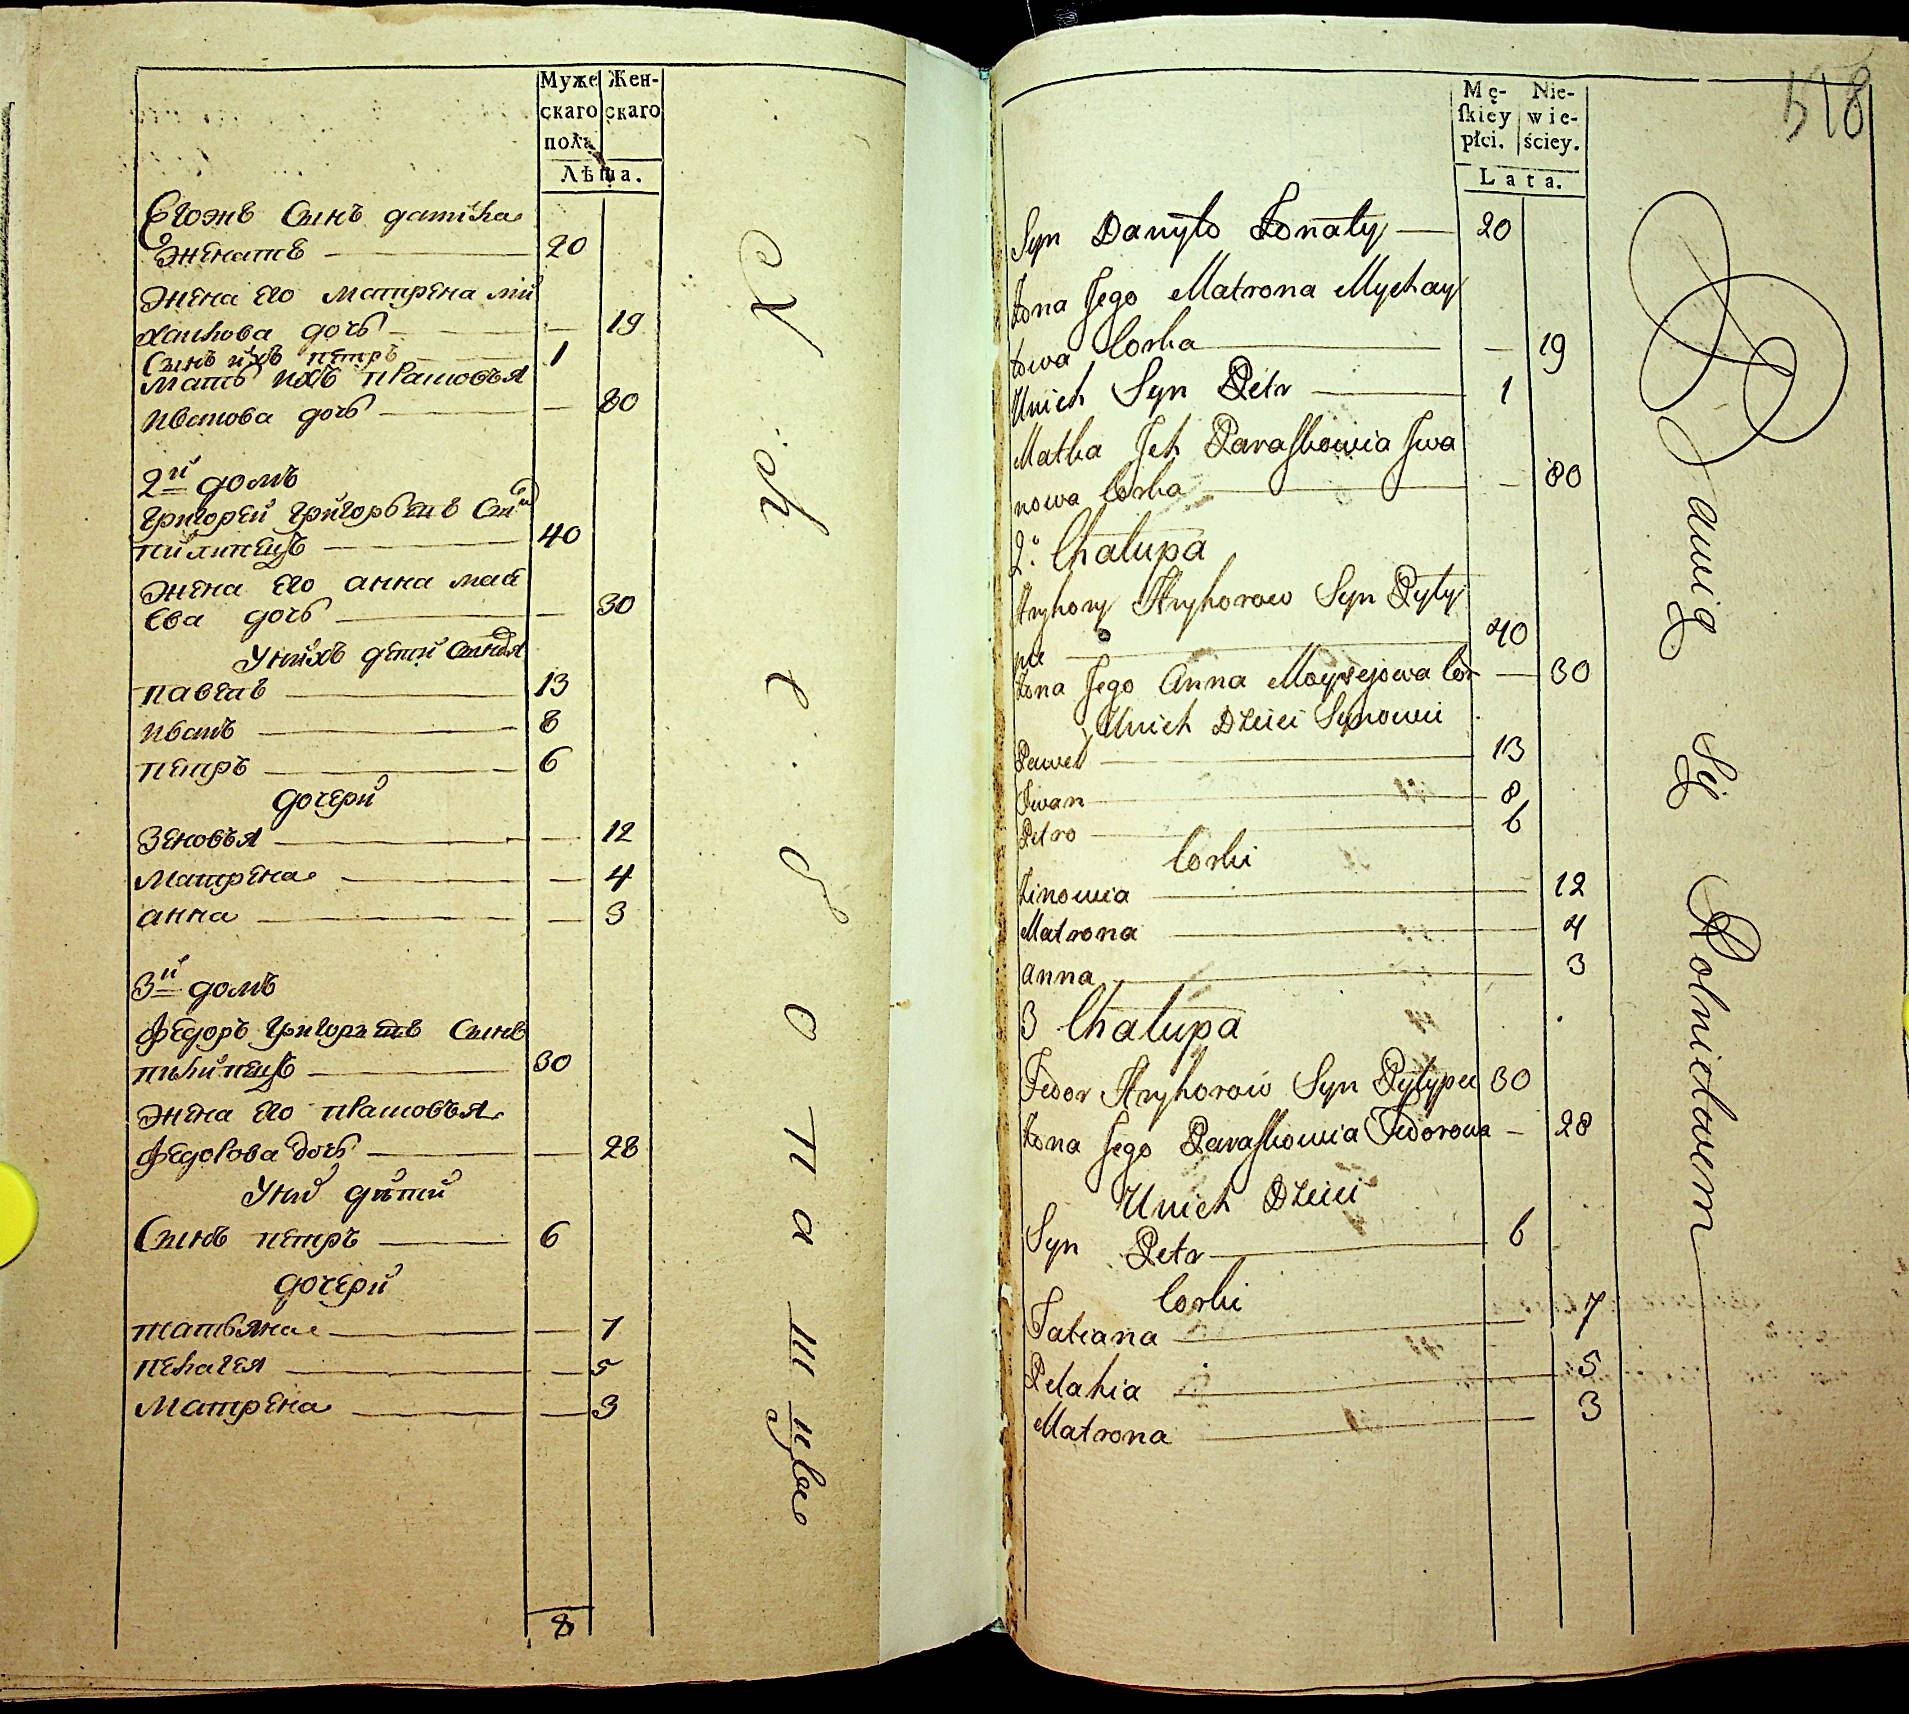 Муже Жен-
скаго скаго
пола
Лѣта.
Егожъ Сынъ данила
женатъ 20
жена его матрена ми
хаилова дочь 19
Сынъ ихъ петръ 1
мать ихъ прасковья
иванова дочь 80
2й домъ
григорей григорьевъ Сынъ
пилипецъ 40
жена его анна мосе
ева дочь 30
У нихъ дети Сыновья
павелъ 13
иванъ 8
петръ 6
дочери
Зеновья 12
матрена 4
анна 3
3й домъ
федоръ григорьевъ Сынъ
пилипецъ 30
жена его прасковья
федорова дочь 28
У них дѣти
Сынъ петръ 6
дочери
татьяна 7
пелагея 5
матрена 3
8
Хлебопашцы
Mę- Nie-
ſkiey wie-
płci. ściey.
Lata.
814
Syn Danyło Żonaty 20
Żona Jego Matrona Mychay
łowa Corka 19
Unich Syn Petr 1
Matka Jch Paraſkowia Jwa
nowa Corka 80
2° Chałupa
Hryhory Hryhorow Syn Pyły
pec 40
Żona Jego Anna Moysejowa Cor 30
Unich Dzieci Synowie
Paweł 13
Jwan 8
Petro 6
Corki
Zinowia 12
Matrona 4
Anna 3
3 Chałupa
Fedor Hryhorow Syn Pyłypec 30
Żona Jego Paraſkowia Fedorowa 28
Unich Dzieci
Syn Petr 6
Corki
Tatiana 7
Pelahia 5
Matrona 3
Bawią Się Rolnictwem